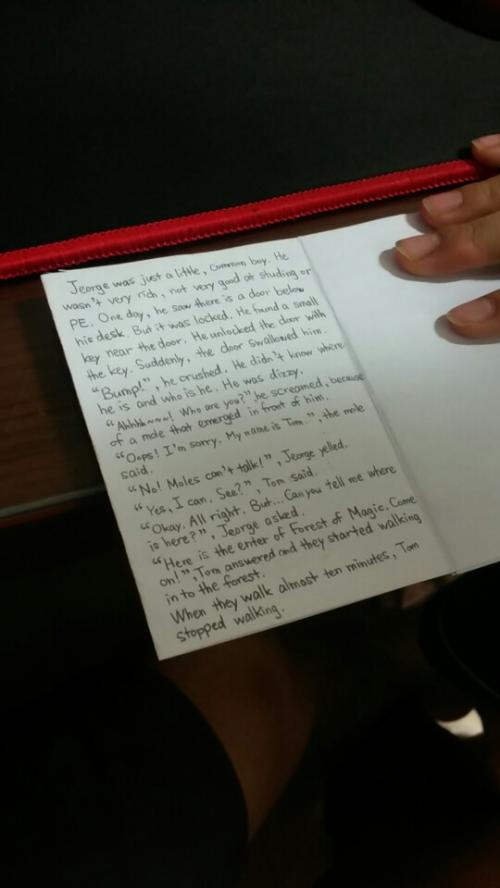 Jeorge was just a little, common boy. He
wasn't very rich, not very good at studing or
PE. One day, he saw there is a door below
his desk. But it was locked. He found a small
key near the door. He unlocked the door with
the key. Suddenly, the door swallowed him.
"Bump!", he crushed. He didn't know where
he is and who is he. He was dizzy.
"Ahhhh~~~! Who are you?", he screamed, because
of a mole that emerged in front of him.
"Oops! I'm sorry. My name is Tom.", the mole
said.
"No! Moles can't talk!", Jeorge yelled.
"Yes, I can. See?", Tom said.
"Okay. All right. But... Can you tell me where
is here?", Jeorge asked.
"Here is the enter of Forest of Magic. Come
on!", Tom answered and they started walking
in to the forest.
When they walk almost ten minutes, Tom
stopped walking.